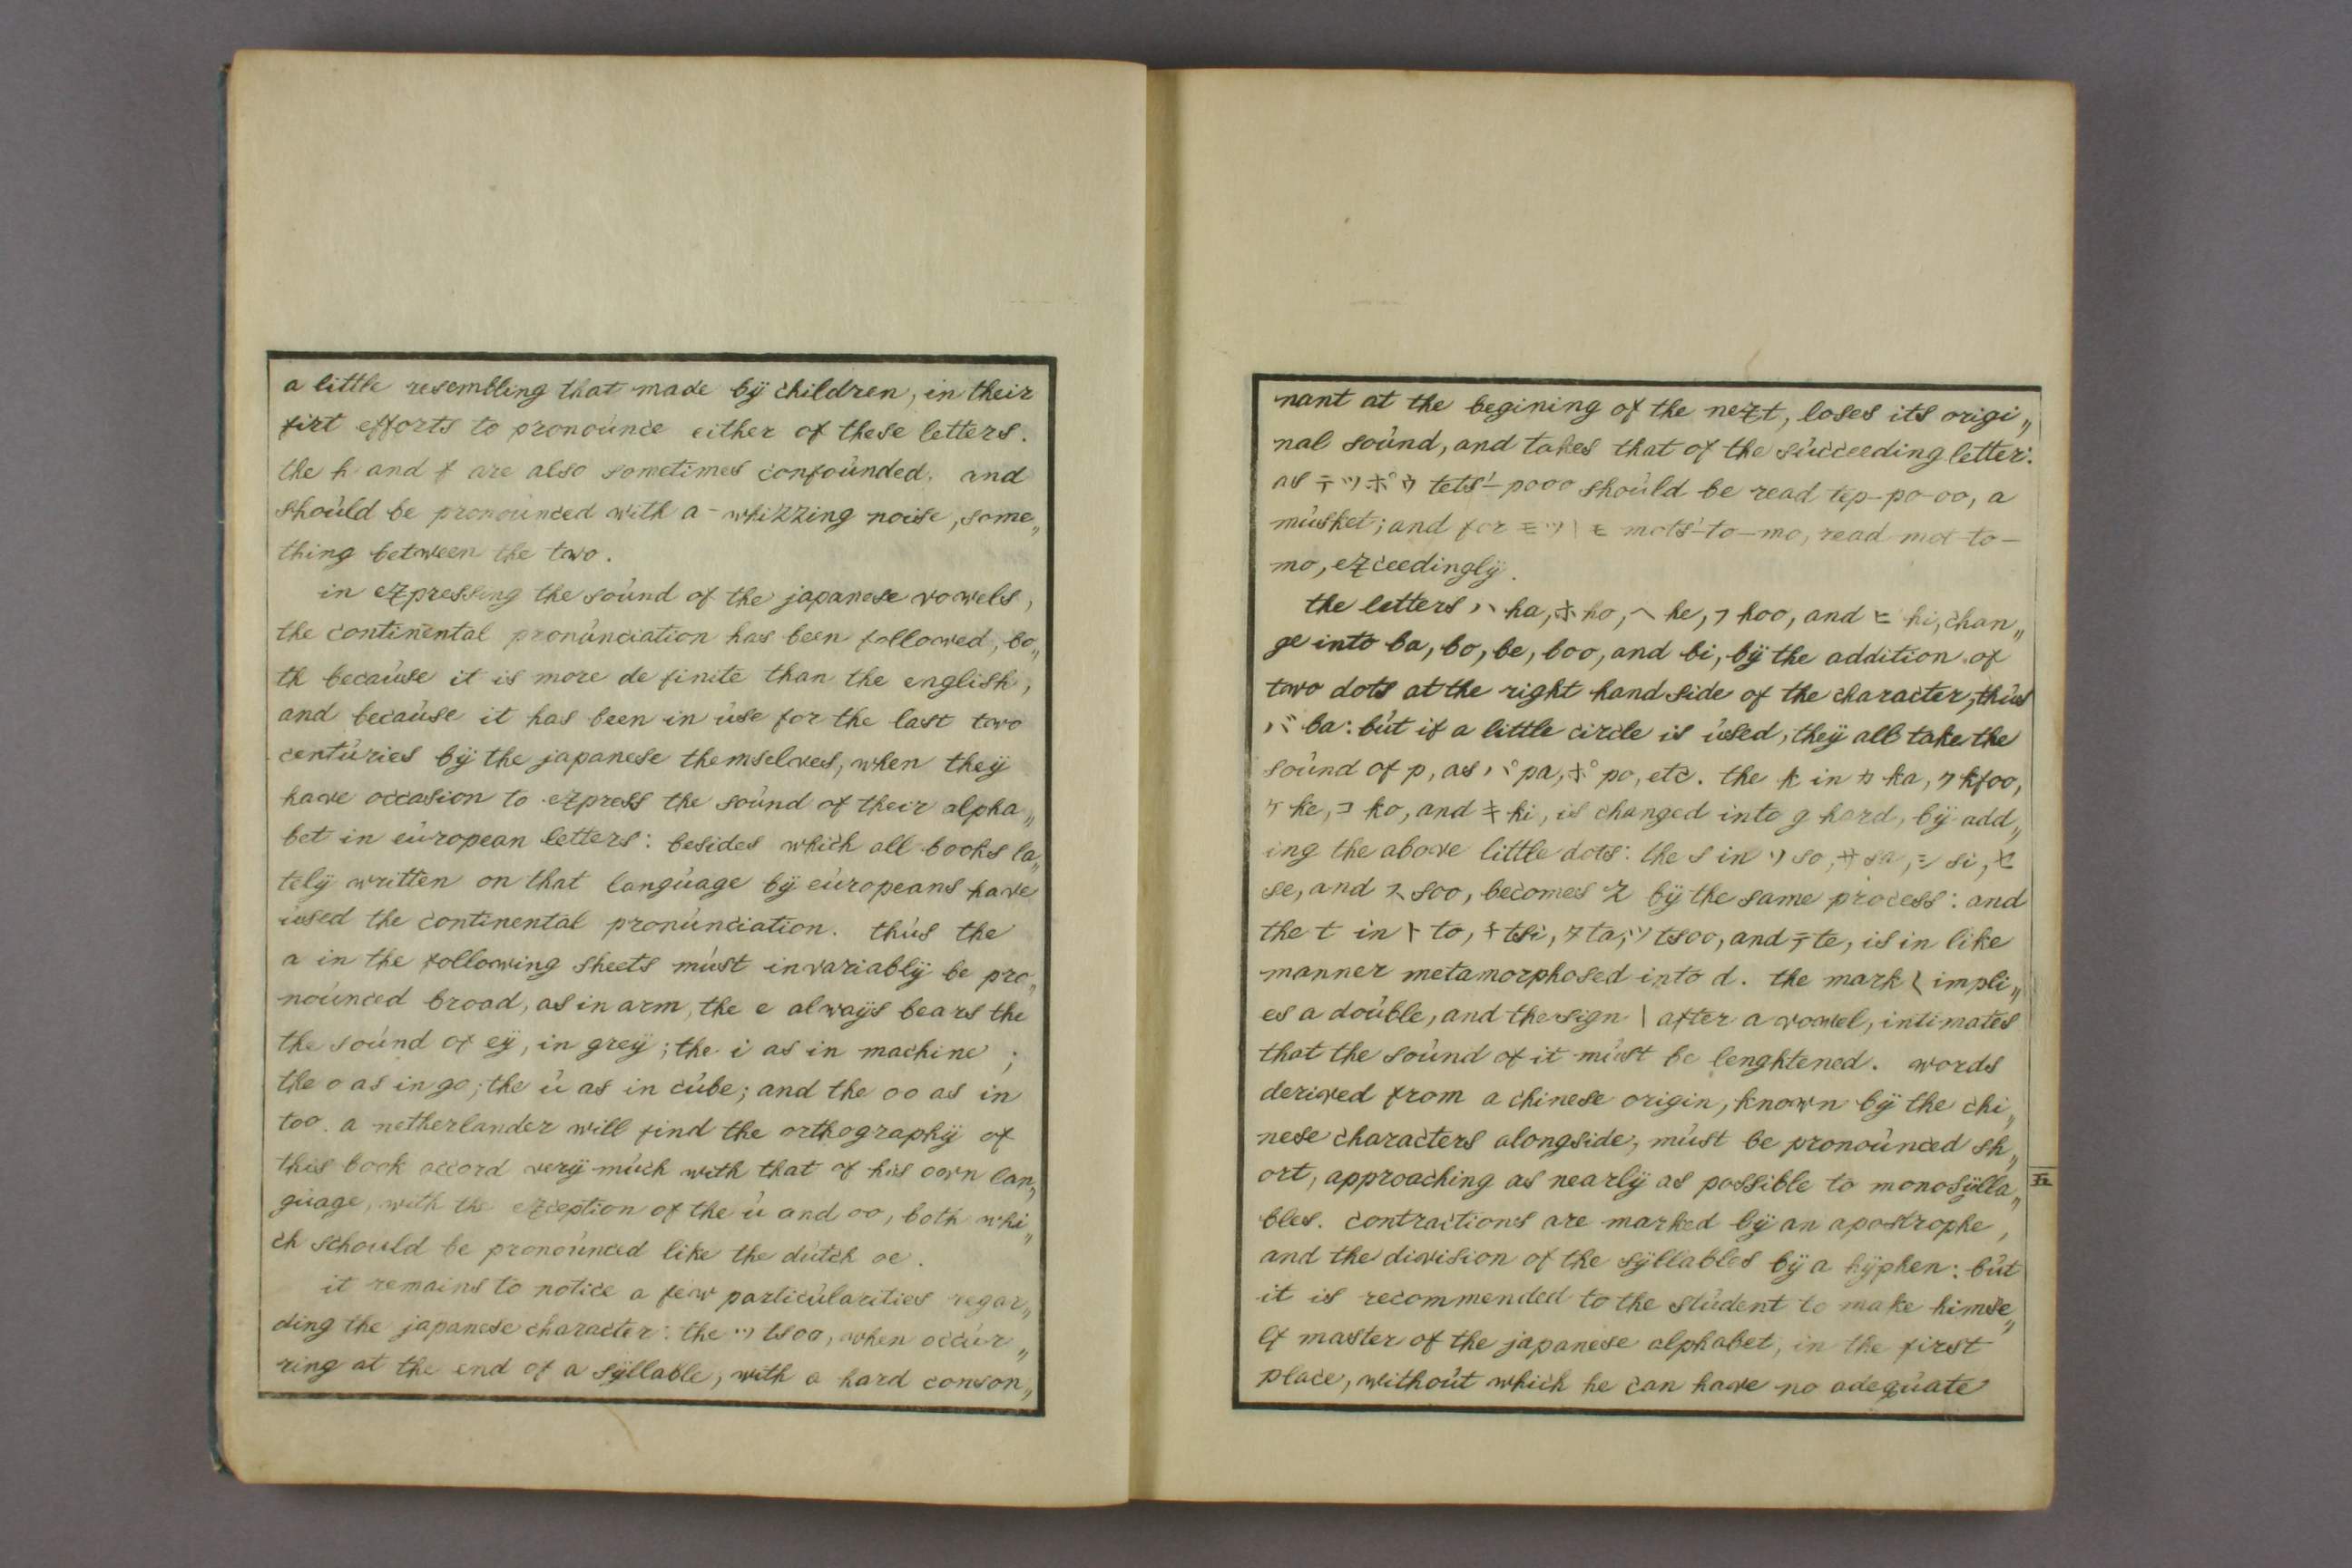 a little resembling that made bÿ children, in their
firt efforts to pronoúnce either of these letters.
the h and f are also sometimes confoúnded, and
shoúld be pronoúnced with a - whizzing noise, some„
thing between the two.
in ezpressing the soúnd of the japanese vowels,
the continental pronúnciation has been followed, bo„
th becaúse it is more de finite than the english,
and becaúse it has been in úse for the last two
centúries bÿ the japanese themselves, when theÿ
have occasion to ezpress the soúnd of their alpha„
bet in eúropean letters: besides which all books la„
telÿ written on that langúage bÿ eúropeans have
úsed the continental pronúnciation. thús the
a in the following sheets múst invariablÿ be pro„
noúnced broad, as in arm, the e alwaÿs bears the
the soúnd of eÿ, in greÿ; the i as in machine;
the o as in go; the ú as in cúbe; and the oo as in
too. a netherlander will find the orthographÿ of
this book accord verÿ múch with that of his oown lan„
gúage, with the ezception of the ú and oo, both whi„
ch schould be pronoúnced like the dútch oe.
it remains to notice a few particúlarities regar„
ding the japanese character: the ツ tsoo, when occúr„
ring at the end of a sÿllable, with a hard conson„
nant at the begining of the nezt, loses its origi„
nal soúnd, and takes that of the súcceeding letter:
as テツポウ tets'-pooo shoúld be read tep-po-oo, a
músket; and for モツトモ mots'-to-mo, read mot-to-
mo, ezceedinglÿ.
the letters ハ ha, ホ ho, ヘ he, フ hoo, and ヒ hi, chan„
ge into ba, bo, be, boo, and bi, bÿ the addition of
two dots at the right hand side of the character, thús
バ ba: bút if a little circle is úsed, theÿ all take the
soúnd of p, as パ pa, ポ po, etc. the k in カ ka, ク kfoo,
ケ ke, コ ko, and キ ki, is changed into g hard, bÿ add„
ing the above little dots: the s in ソ so, サ sa, シ si, セ
se, and ス soo, becomes z bÿ the same process: and
the t in ト to, チ tsi, タ ta, ツ tsoo, and テ te, is in like
manner metamorphosed into d. the mark 〱 impli„
es a doúble, and the sign \ after a vowel, intimates
that the soúnd of it múst be lenghtened. words
derived from a chinese origin, known bÿ the chi„
nese characters alongside, múst be pronoúnced sh„
ort, approaching as nearlÿ as possible to monosÿlla„
bles. contractions are marked bÿ an apostrophe,
and the division of the sÿllables bÿ a hÿphen: bút
it is recommended to the stúdent to make himse„
lf master of the japanese alphabet, in the first
place, withoút which he can have no adeqúate